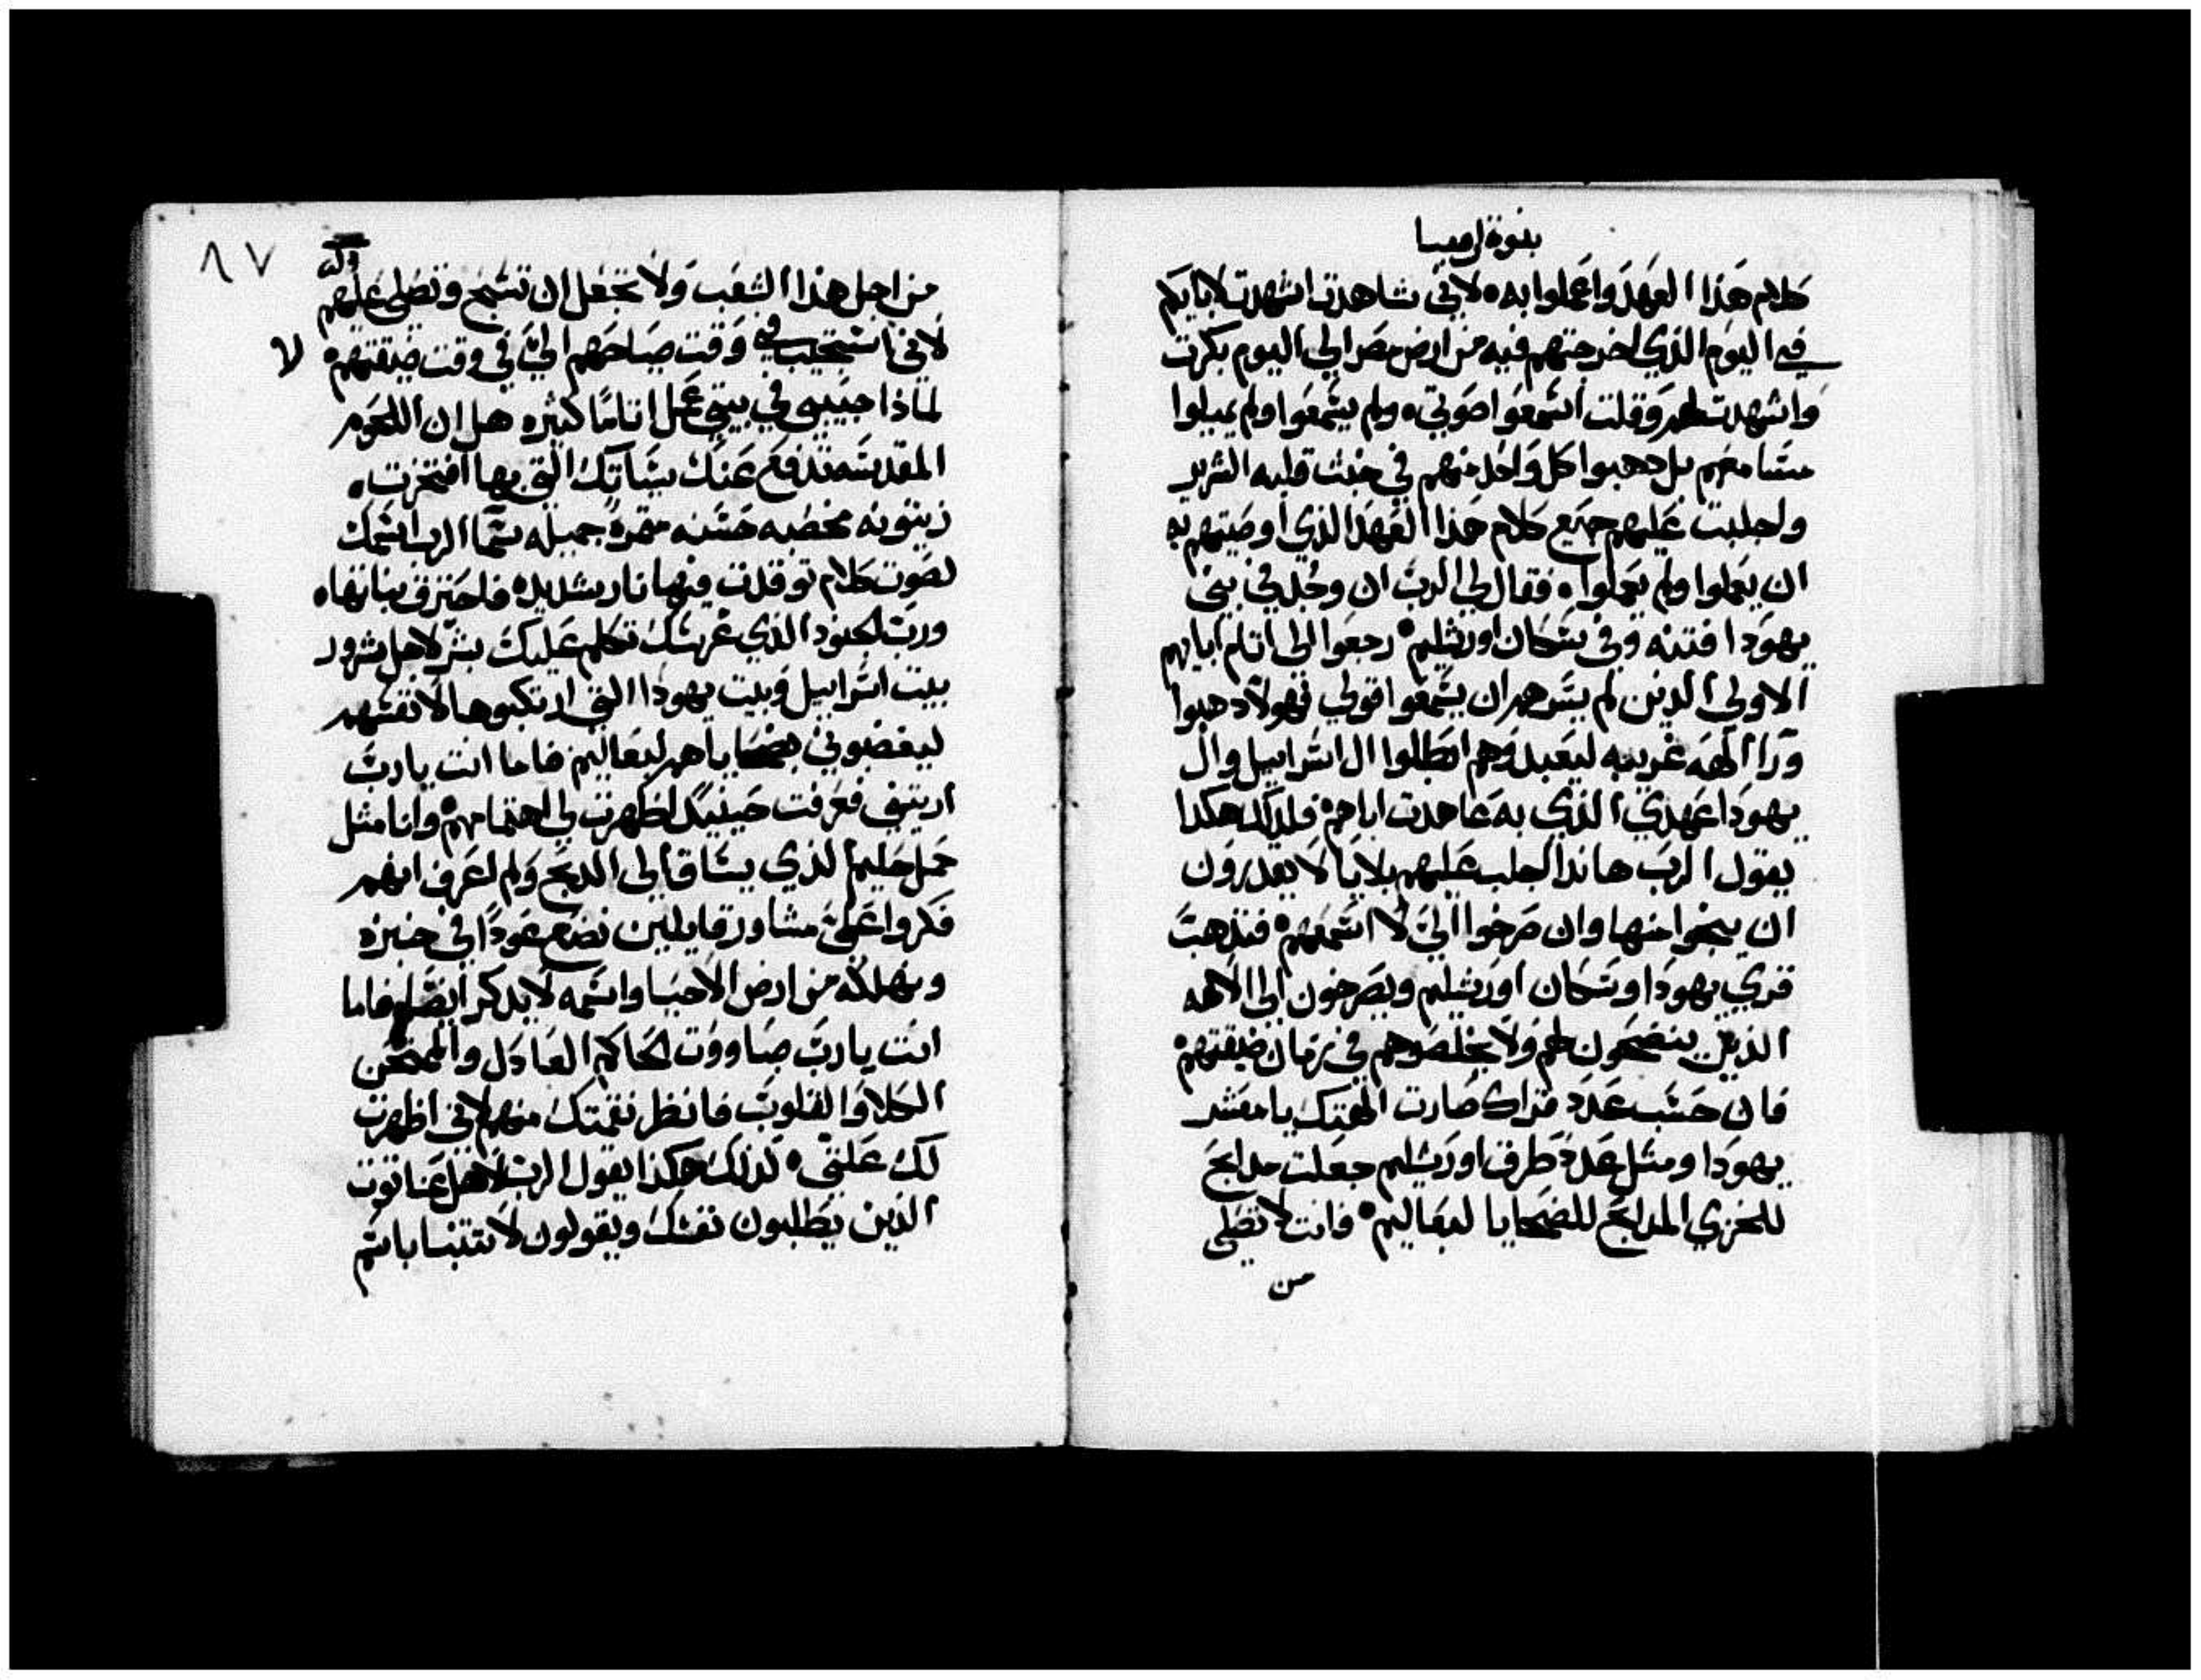 نبوة ارميا
كلام هذا العهد واعملوا به ٥ لاني شاهدت اشهدت لابايكم
في اليوم الذي اخرجتهم فيه من ارض مصر الي اليوم بكرت
واشهدت لهم وقلت اسمعوا صوتي ٥ ولم يسمعوا ولم يميلوا
مسامعهم بل دهبوا كل واحد منهم في خبث قلبه الشرير
واجلبت عليهم جميع كلام هذا العهد الذي اوصيتهم به
ان يعملوا ولم يعملوا ٥ فقال لي الرب ان وجد في بيتي
يهودا فتنه وفي سكان اورشليم ٥ رجعوا الى اتام ابايهم
الاولي الذين لم يسرهم ان يسمعوا قولي فهولا دهبوا
ورا الهه غريبه ليعبدوهم ابطلوا ال اسراييل وال
يهودا عهدي الذي به عاهدت اباهم ٥ فلدلك هكدا
يقول الرب هاندا اجلب عليهم بلايا لا يقدرون
ان ينجوا منها وان صرخوا اليّ لا اسمعهم ٥ فتذهب
قري يهودا وسكان اورشليم ويصرخون الى الالهه
الذين ينضحون لهم ولا يخلصوهم في زمان ضيقتهم ٥
فان حسب عدد قراك صارت الهتك يا معشر
يهودا ومثل عدد طرق اورشليم جعلت مدابح
للخزي المدابح للضحايا لبعاليم ٥ فانت لا تصلي
من
٨٧
من اجل هذا الشعب ولا تجعل ان تسبح وتصلي عليهم
لاني استجيب في وقت صياحهم اليّ في وقت ضيقتهم ٥ لا
لماذا حبيبي في بيتي عمل اتامًا كثيره هل ان اللحوم
المقدسه تدفع عنك سياتك التي بها افتخرت ٥
زيتونه مخصبه حسنه متمرة جميله سما الرب اسمك
لصوت كلام توقدت فيها نار شديده فاحترق نباتها ٥
ورب الجنود الذي غرسك تكلم عليك بشر لاجل شرور
بيت اسراييل وبيت يهودا التي ارتكبوها لانفسهم
ليغضبوني بضحاياهم لبعاليم فاما انت يا رب
اريتني فعرفت حينيدٍ اظهرت لي اهتمامهم ٥ وانا مثل
حمل حليم الذي يساق الى الدبح ولم اعرف انهم
فكروا عليّ مشاور قايلين نضع عودًا في خبزه
ونهلكه من ارض الاحيا واسمه لا يدكر ايضًا ٥ فاما
انت يا رب صاووت الحاكم العادل والممتحن
الكلا والقلوب فانظر نقمتك منهم لاني اظهرت
لك علتي ٥ لذلك هكذا يقول الرب لاهل عناتوت
الذين يطلبون نفسك ويقولون لا تتنبا باسم